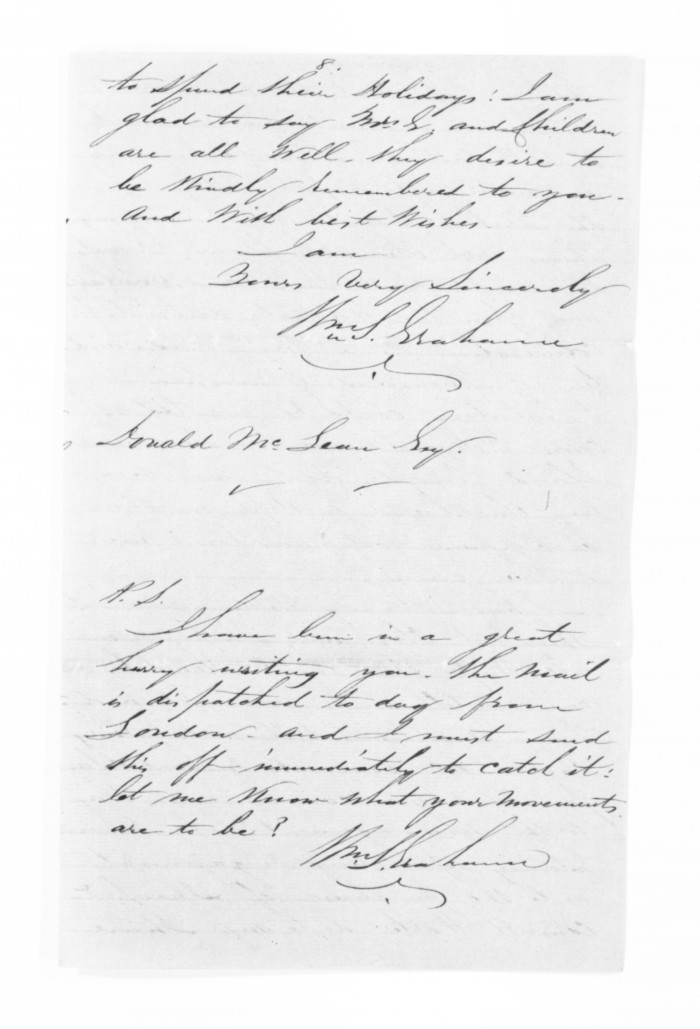 8.
to spend their Holidays: I am
glad to say Mrs G. and Children
are all Well. they desire to
be Kindly remembered to you.
and With best Wishes.
I am
Yours Very Sincerely
Wm S. Grahame
Donald McLean Esq.
P.S.
I have been in a great
hurry writing you. the Mail
is dispatched to day from
London. and I must send
this off immediately to catch it:
let me Know what your Movements
are to be?
Wm S. Grahame